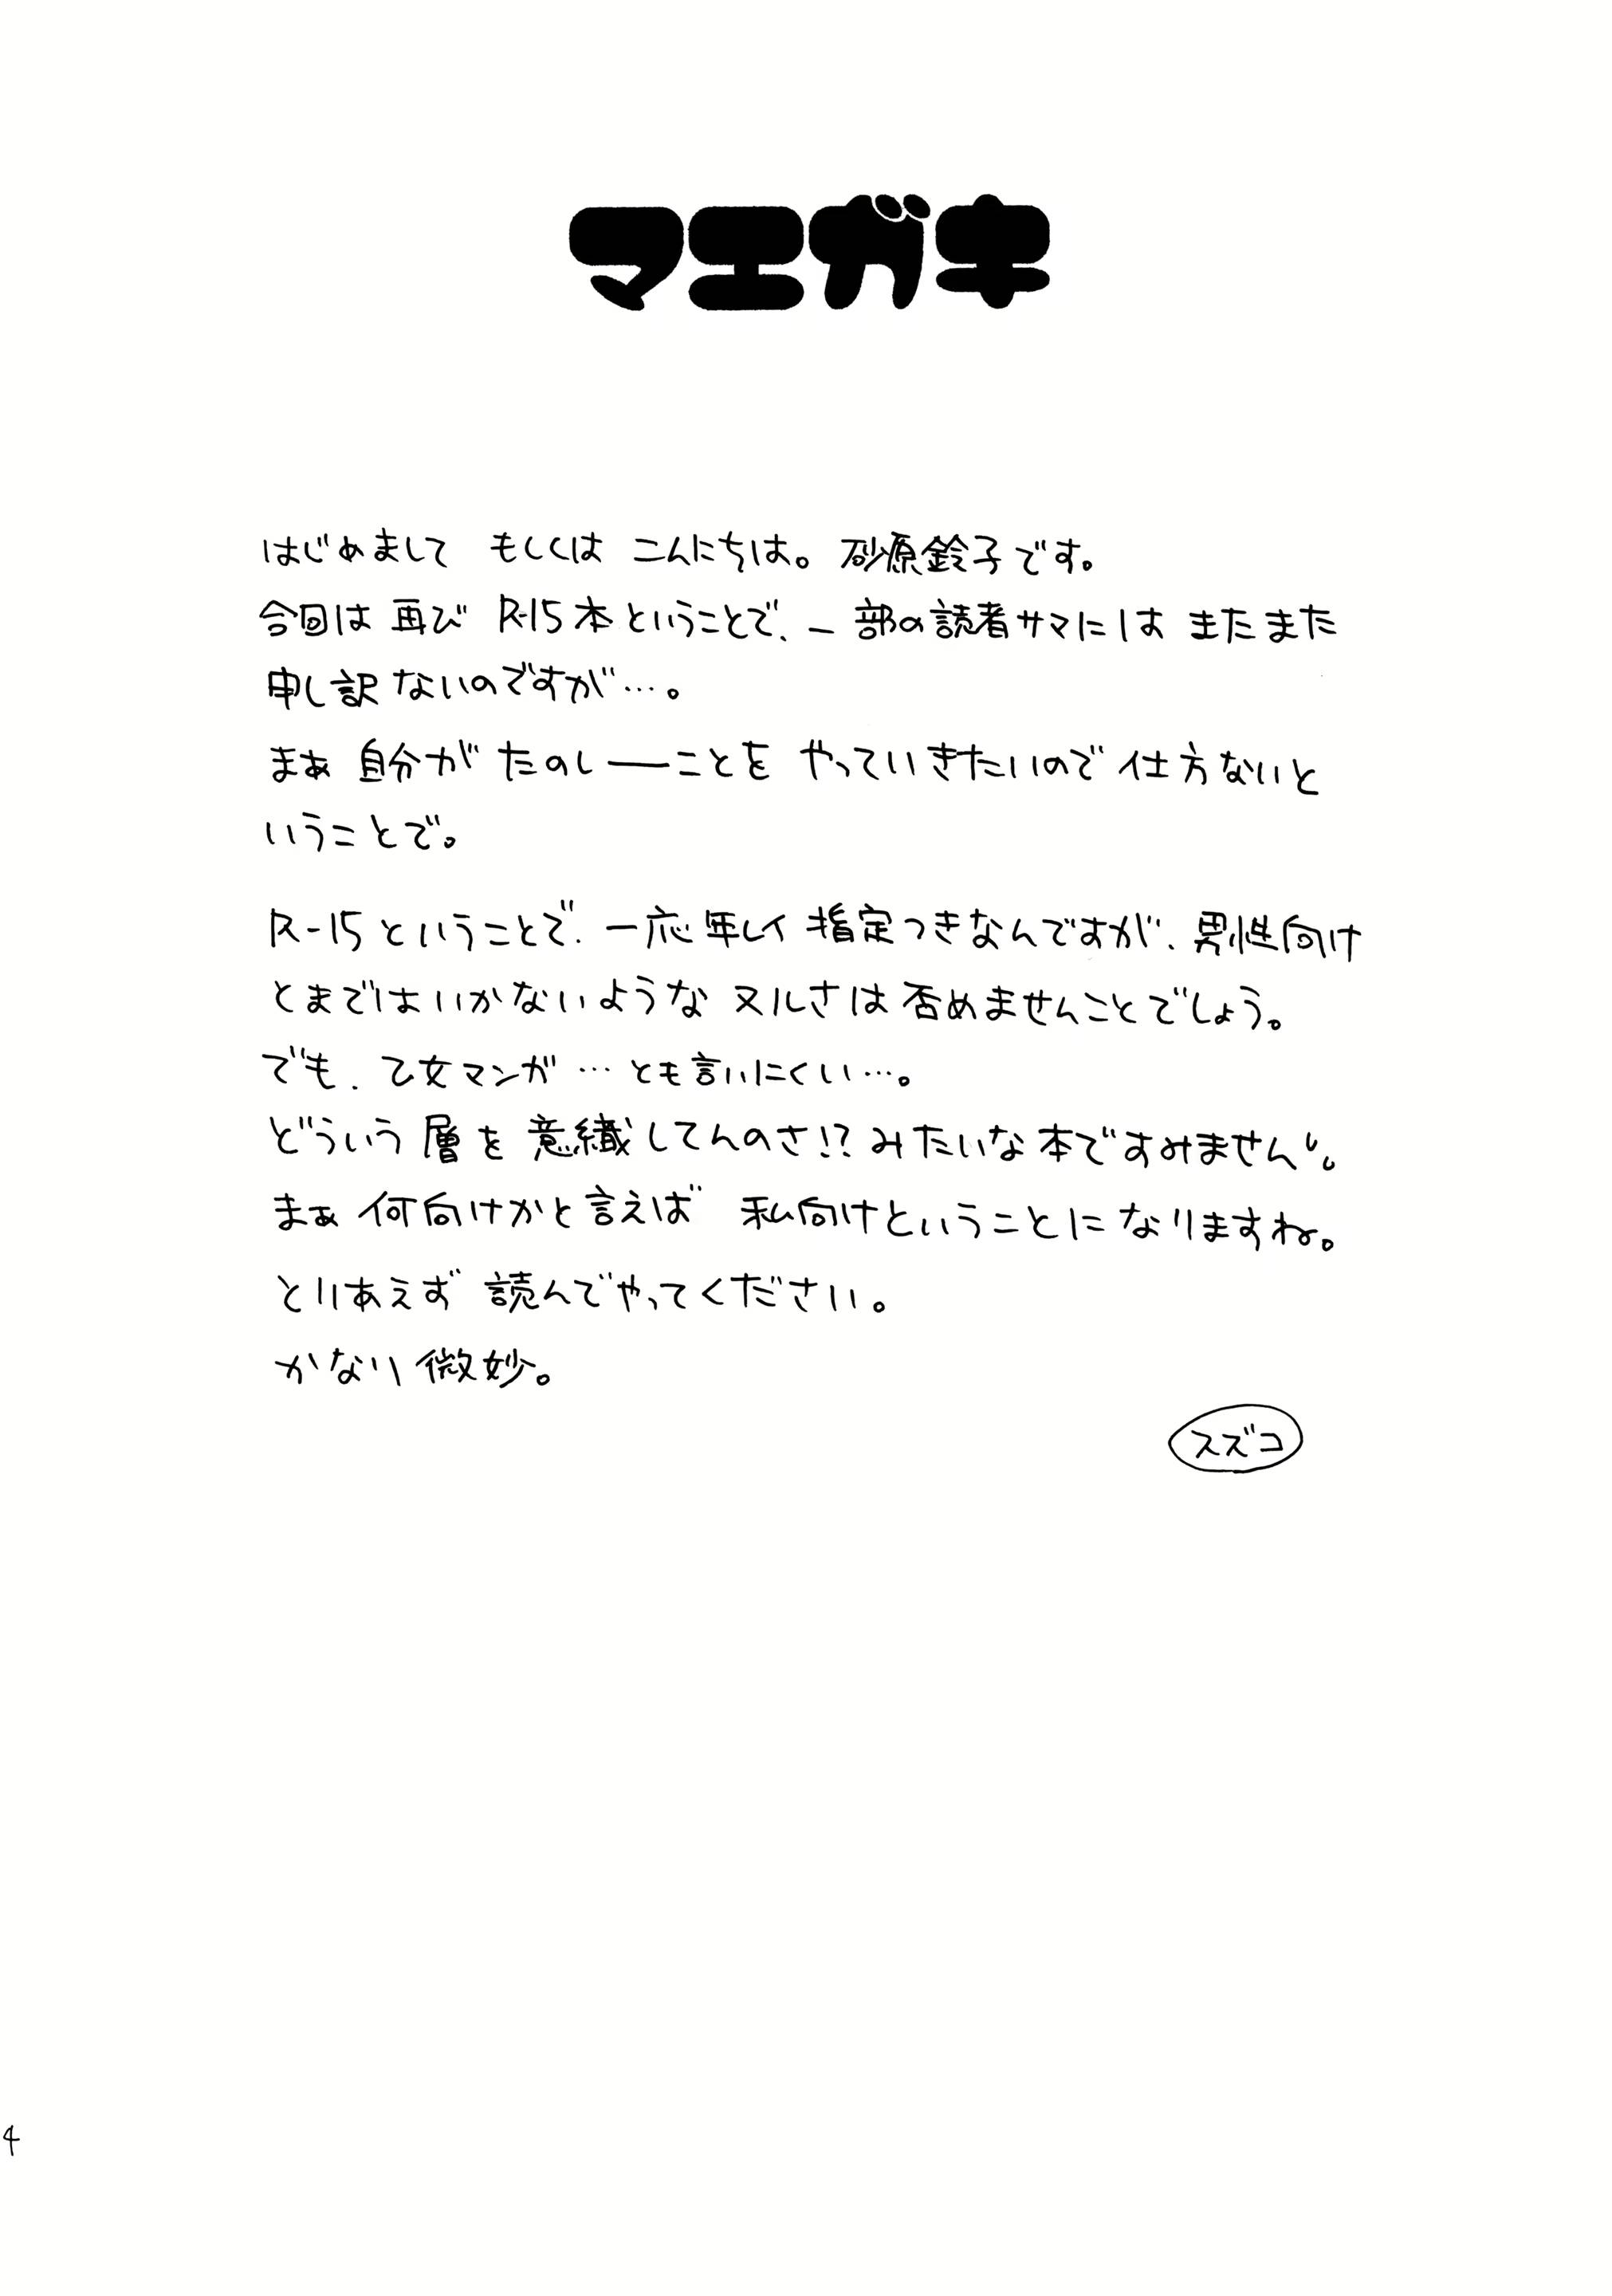 マエガキ
はじめまして もしくは こんにちは。 砂原鈴子です。
今回は 再び R-15本ということで、一部の読者サマには またまた
申し訳ないのですが…。
まぁ 自分が たのしーことを やっていきたいので 仕方ないと
いうことで。
R-15ということで、一応年レイ指定つきなんですが、男性向け
とまではいかないような ヌルさは 否めませんことでしょう。
でも、乙女マンガ…とも言いにくい…。
どういう層を意織してんのさ!?みたいな本ですみません。
まぁ 何向けかと言えば 私向けということに なりますね。
とりあえず 読んでやってください。
かなり微妙。
スズコ
4